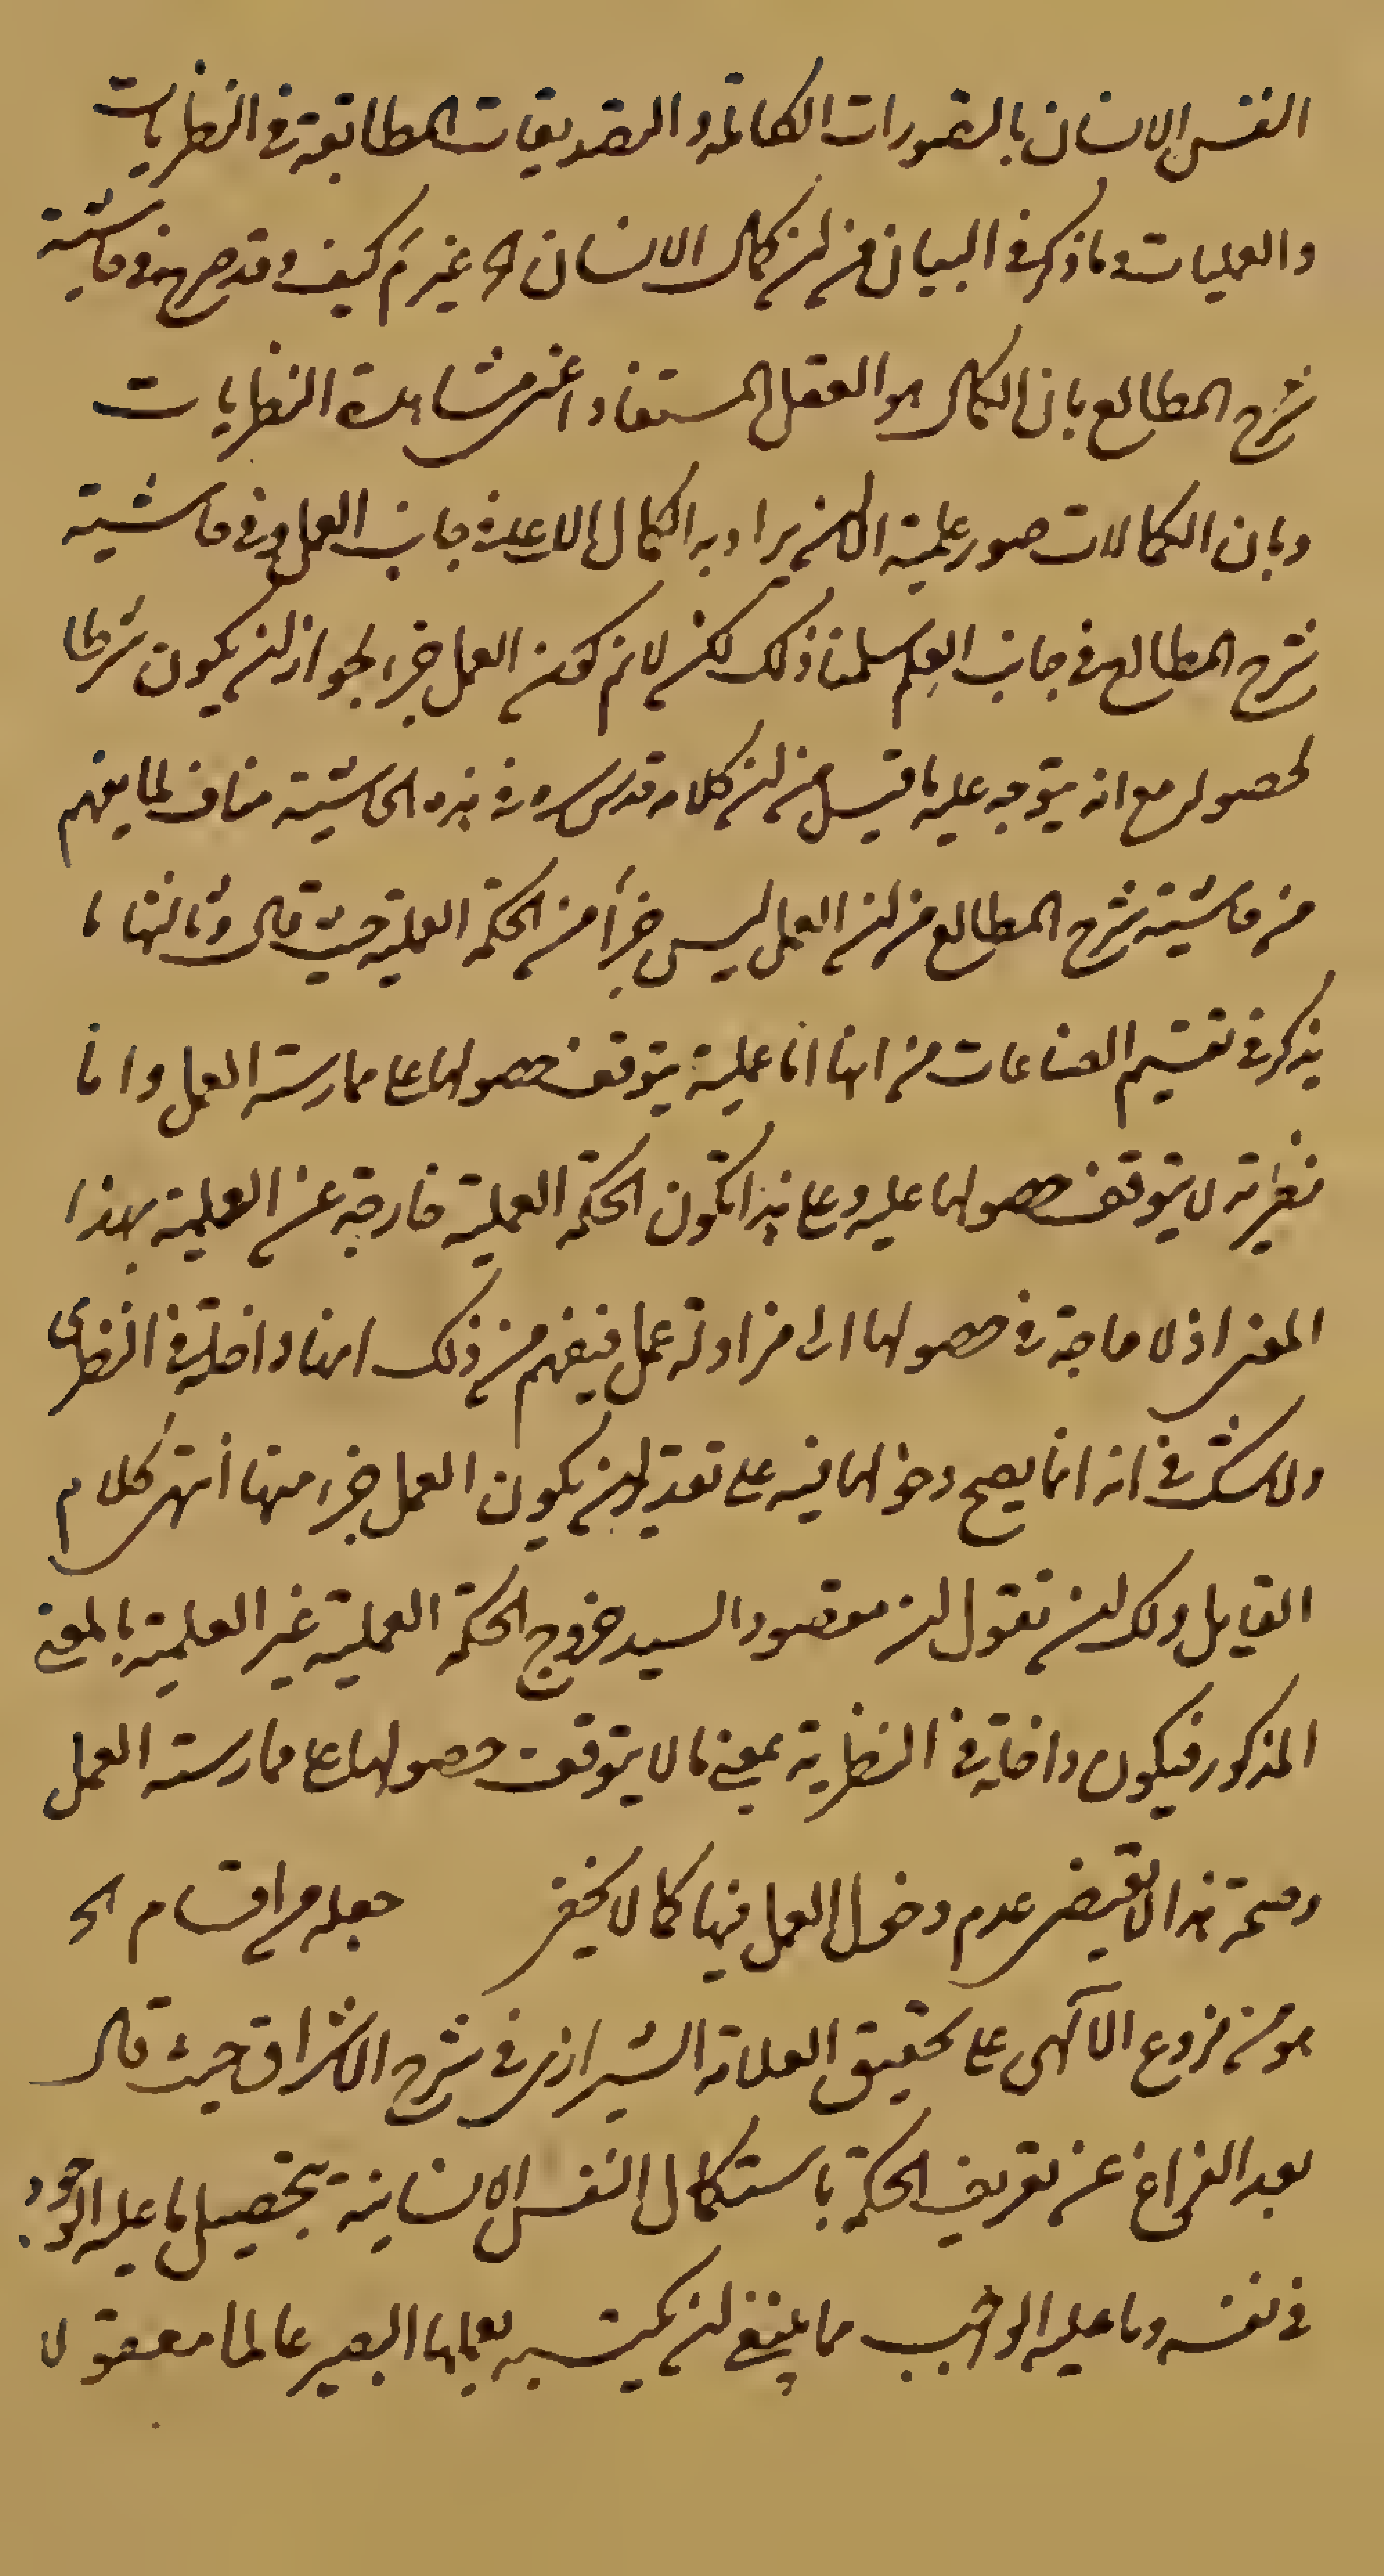 النفس الانسان بالتصورات الكاملة و التصديقات المطابقة فى النظريات
والعمليات وما ذكر فى البيان من ان كمال الانسان اه غير تم كيف وقد صرح فى حاشية
شرح المطالع بان الكمال هو العقل المستفاد اعنى مشاهدة النظريات
وبان الكمالات صور علمية الا ان يراد به الكمال الاعلى فى جانب العمل وفى حاشية
شرح المطالع فى جانب العلم سلمنا ذلك لكن لا نم كون العمل جزء لجواز ان يكون شرطا
لحصوله مع انه يتوجه عليه ما قيل من ان كلامه قدس سره فى هذه الحاشية مناف لما يفهم
من حاشية شرح المطالع من ان العمل ليس جزأ من الحكمة العملية حيث قال وثالثها ما
يذكر فى تقسيم الصناعات من انها اما عملية يتوقف حصولها على ممارسة العمل واما
نظرية لا يتوقف حصولها عليه وعلى هذا تكون الحكمة العملية خارجة عن العلمية بهذا
المعنى اذ لا حاجة فى حصولها الى مزاولة عمل فيفهم من ذلك انها داخلة فى النظرى
ولا شك فى انه انما يصح دخولها فيه على تقدير ان يكون العمل جزء منها انتهى كلام
القايل ولك ان تقول ان مقصود السيد خروج الحكمة العملية غير العلمية بالمعنى
المذكور فيكون داخلة فى النظرية بمعنى ما لا يتوقف حصولها على ممارسة العمل
وصحة هذا لا تقتضى عدم دخول العمل فيها كما لا يخفى جعله من اقسام اه
هو من فروع الآلهى على تحقيق العلامة الشيرازى فى شرح الاشراق حيث قال
بعد الفراغ عن تعريف الحكمة باستكمال النفس الانسانية بتحصيل ما عليه الوجود
فى نفسه وما عليه الواجب مما ينبغى ان يكتسبه بعملها ليصير عالما معقولا